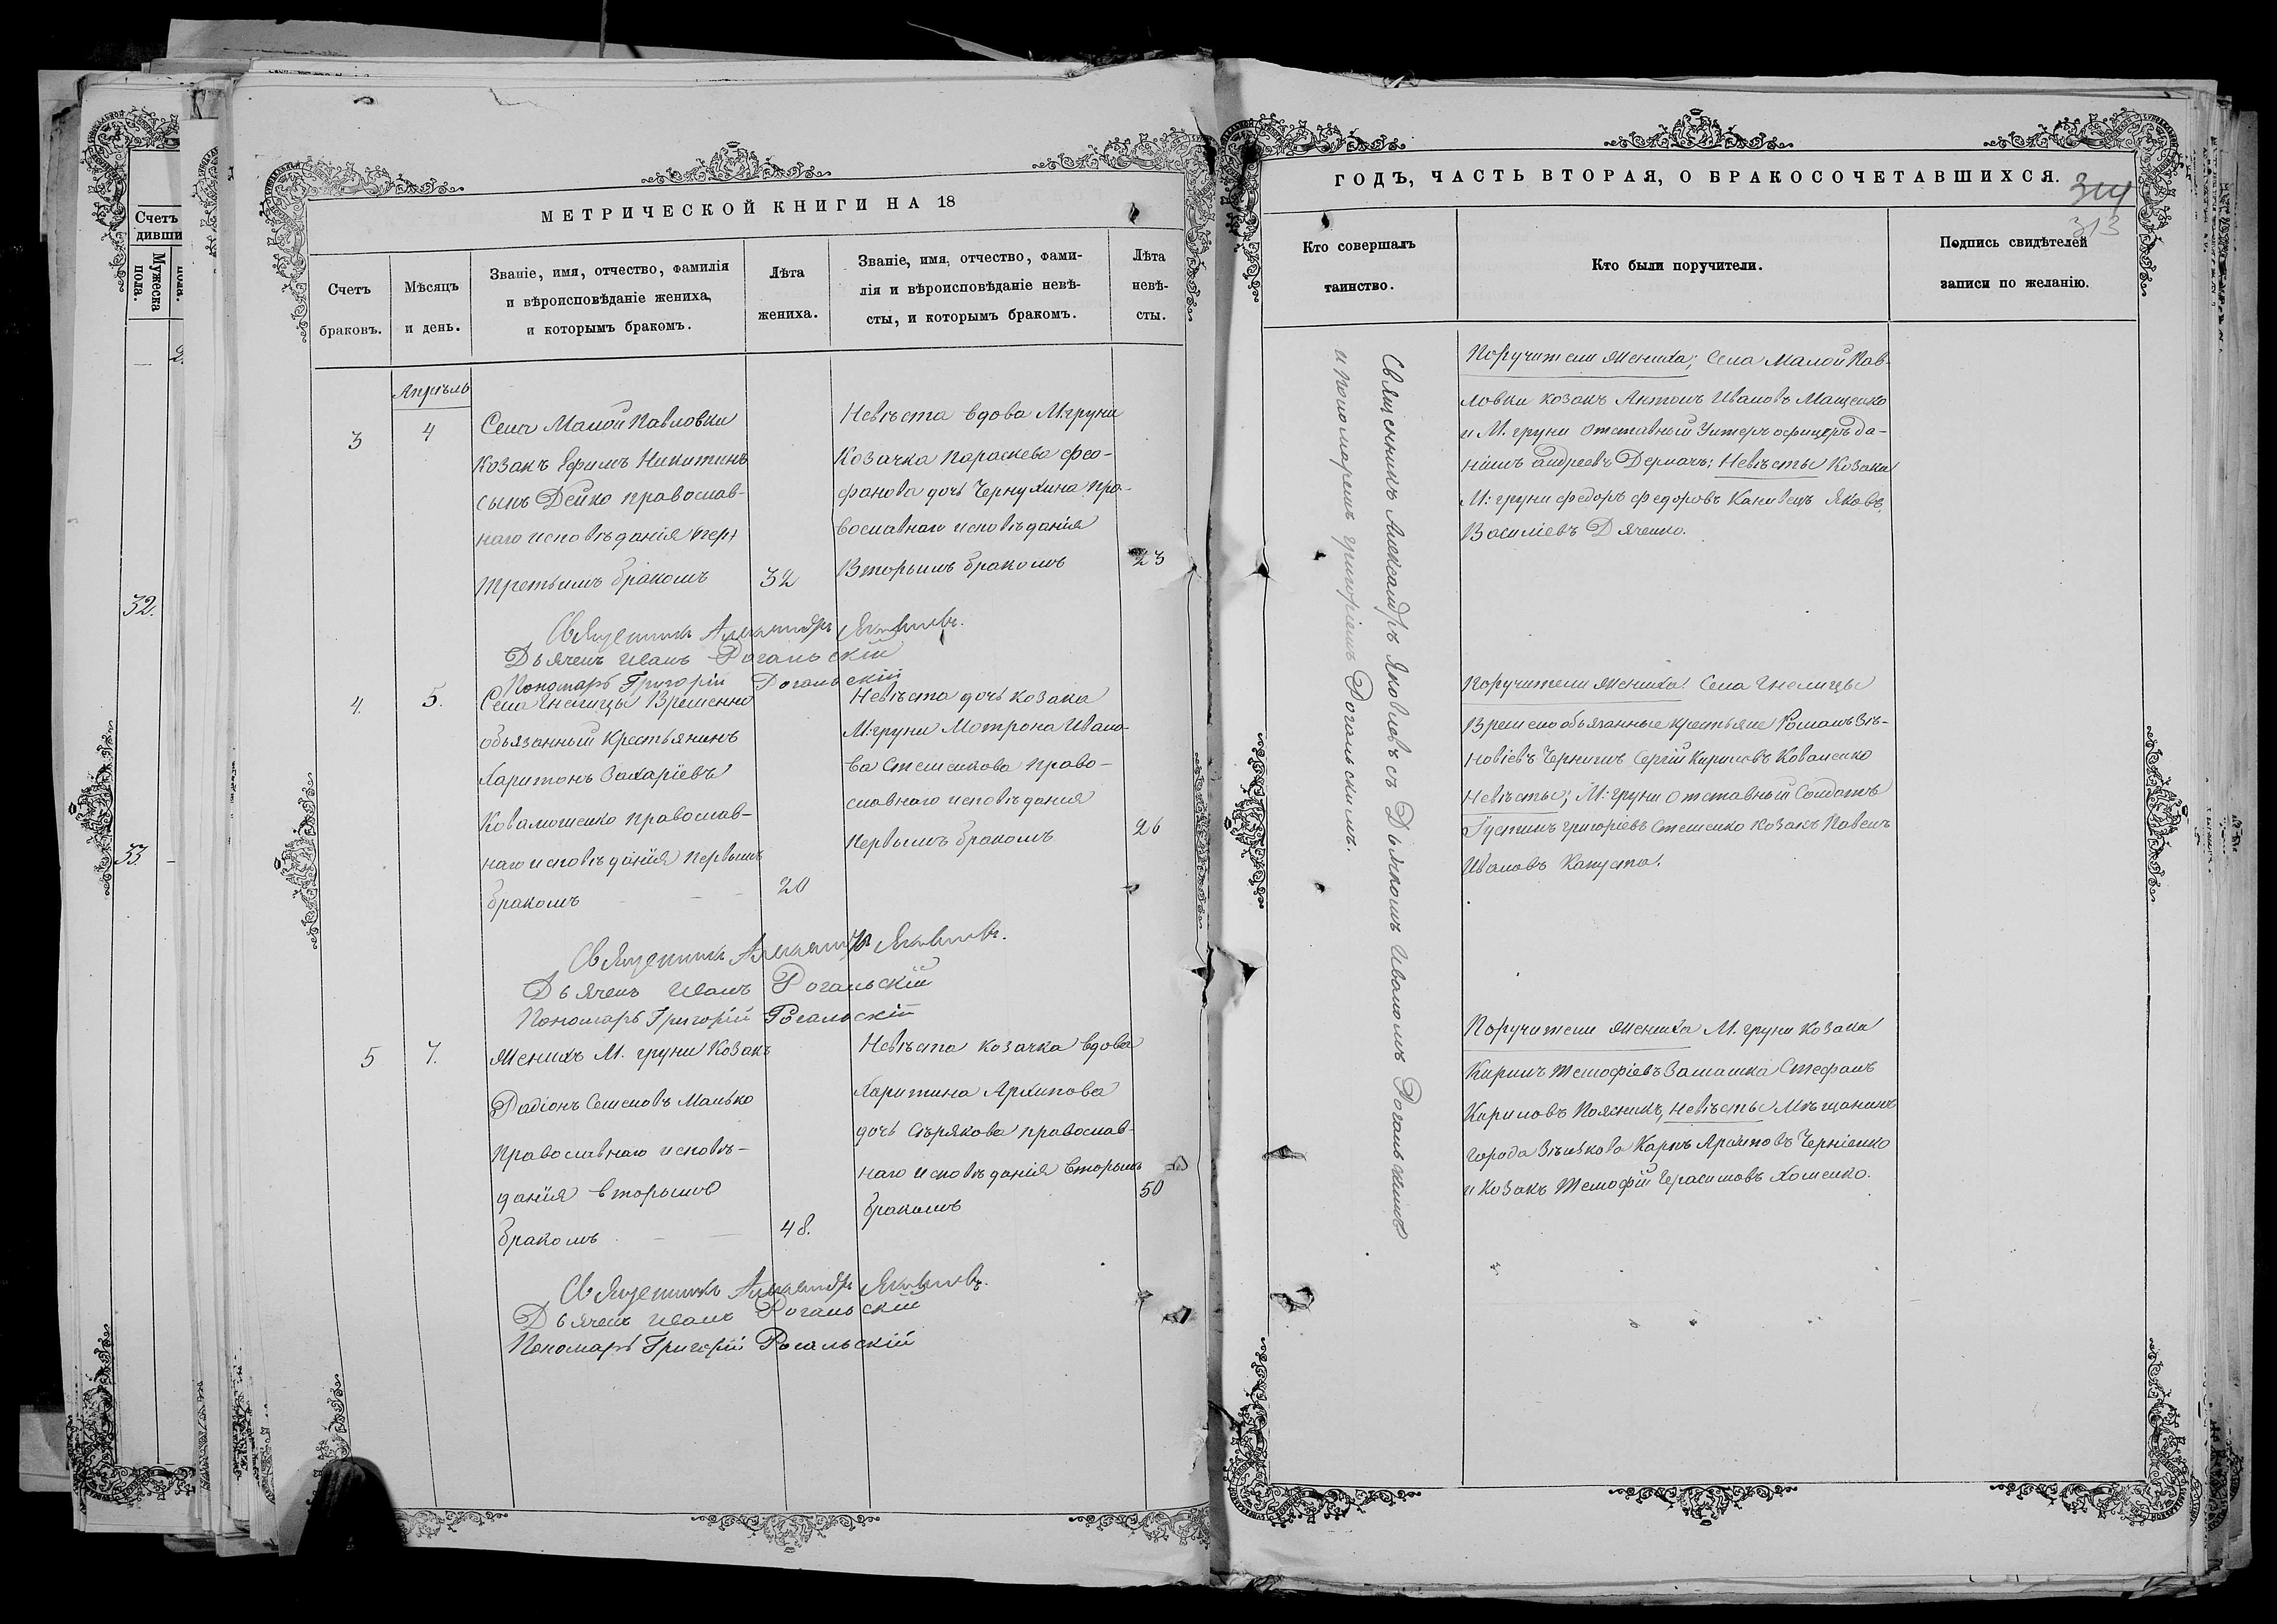 МЕТРИЧЕСКОЙ КНИГИ НА 18
Счетъ
браковъ.
Мѣсяцъ
и день.
Званіе, имя, отчество, фамилія
и вѣроисповѣданіе жениха,
и которымъ бракомъ.
Лѣта
жениха.
Званіе, имя, отчество, фами-
лія и вѣроисповѣданіе невѣ-
сты, и которымъ бракомъ.
Лѣта
невѣ-
сты.
Апрѣль
3
4
Села Малой Павловки
Козакъ Ефимъ Никитинъ
сынъ Дейко православ-
наго исповѣданія
третьимъ бракомъ
32
Невѣста вдова М: груни
Козачка Параскева Фео-
фанова дочь Чернухина пра-
вославнаго исповѣданія
Вторымъ бракомъ
23
Священникъ Александръ Яковлевъ.
Дьячекъ Иванъ Рогальскій
Пономарь Григорій Рогальскій
4.
5.
Села Гнелицы Временно
обьязанный Крестьянинъ
Харитонъ Захаріевъ
православ-
наго исповѣданія первымъ
бракомъ
20
Невѣста дочь козака
М: груни Мотрона Ивано-
ва Стешенкова право-
славнаго исповѣданія
первымъ бракомъ
26
Священникъ Александръ Яковлевъ.
Дьячекъ Иванъ Рогальскій
Пономарь Григорій Рогальскій
5
7.
Женихъ М. груни Козакъ
Радіонъ Семеновъ Манько
Православнаго исповѣ-
данія вторымъ
бракомъ
48.
Невѣста козачка вдова
Харитина Архипова
дочь Сѣрякова православ-
наго исповѣданія вторымъ
бракомъ
50
Священникъ Александръ Яковлевъ.
Дьячекъ Иванъ Рогальскій
Пономарь Григорій Рогальскій
ГОДЪ, ЧАСТЬ ВТОРАЯ, О БРАКОСОЧЕТАВШИХСЯ.
314
313
Кто совершалъ
таинство.
Кто были поручители.
Подпись свидѣтелей
записи по желанію.
Священникъ Александръ Яковлевъ съ Дьячкомъ Иваномъ Рогальскимъ
и пономаремъ Григоріемъ Рогальскимъ.
Поручители жениха; Села Малой Пав-
ловки козакъ Антонъ Ивановъ Мащенко
и М. груни Отставный Унтеръ офицеръ Да-
ніилъ Андреевъ Дермачъ; Невѣсты Козаки
М: груни Федоръ Федоровъ Канивецъ Яковъ
Василіевъ Дяченко.
Поручители жениха: Села Гнелицы
Временообьязанные крестьяне Романъ Зѣ-
новіевъ Сергій Кириловъ Коваленко
Невѣсты; М: груни отставный Солдатъ
Густинъ Григоріевъ Стешенко козакъ Павелъ
Ивановъ Капуста.
Поручители жениха М. груни козаки
Кирилъ Темофіевъ Стефанъ
Кириловъ Поясникъ, Невѣсты Мѣщанинъ
города Зѣнькова Карпъ Архиповъ Черніенко
и козакъ Темофій Герасимовъ Хоменко.
Счетъ
дивши
Мужеска
пола.
32.
33